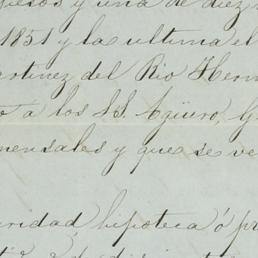 pesos y una de diez
1851 y la ultima el
artinez del Rio Herm
o a los SS. Agüero, G
mensales y que se ve
uridad, hipoteca ó pr